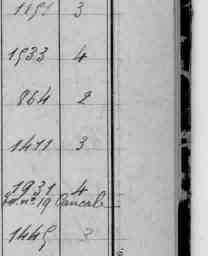 1191 3
1933 4
864 2
1411 3
1931 4
nº 19 Cancale
1445 3